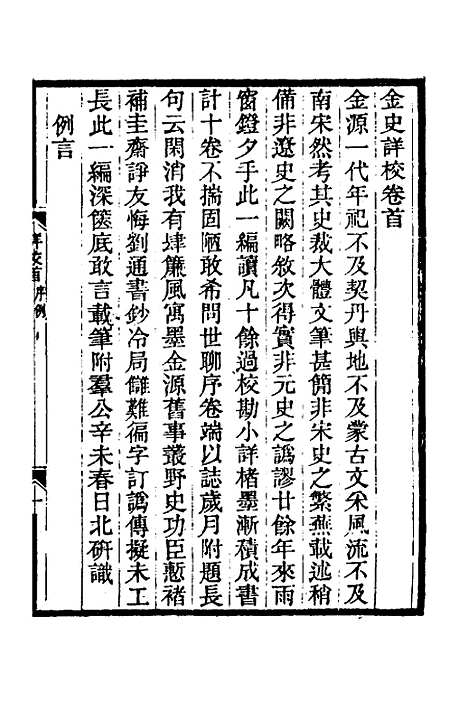 金史詳校卷首
金源一代年祀不及契丹輿地不及蒙古文采風流不及
南宋然考其史裁大體文筆甚簡非宋史之繁蕪載述稍
備非遼史之闕略敘次得實非元史之譌謬廿餘年來雨
窗鐙夕手此一編讀凡十餘過校勘小詳楮墨漸積成書
計十卷不揣固陋敢希問世聊序卷端以誌歲月附題長
句云閑消我有肆簾風寓墨金源舊事叢野史功臣慙褚
補圭齋諍友悔劉通書鈔冷局讎難徧字訂譌傳擬未工
長此一編深篋底敢言載筆附羣公辛未春日北硏識
例言
詳校首 序例
一